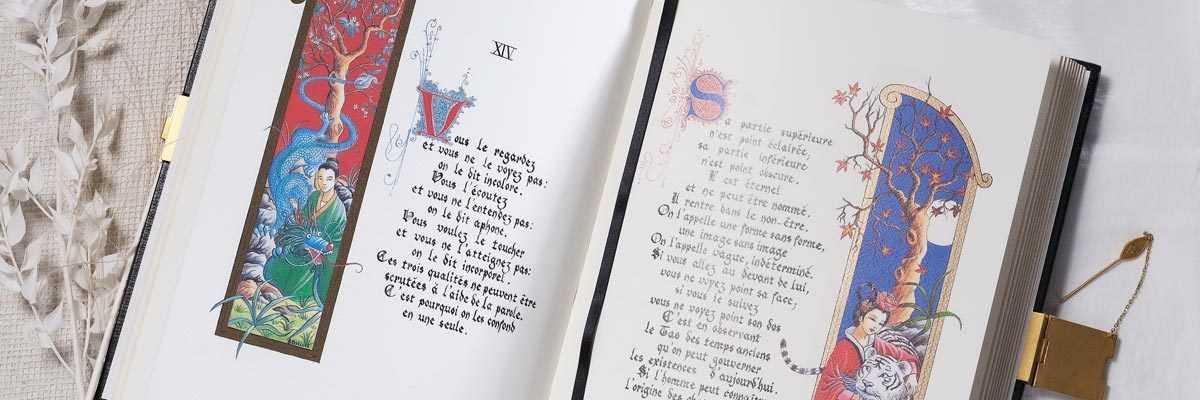 XIV
Vous le regardez
et vous ne le voyez pas:
on le dit incolore.
Vous l'écoutez
et vous ne l'entendez pas:
on le dit aphone.
Vous voulez le toucher
et vous ne l'atteignez pas:
on le dit incorporel.
Ces trois qualités ne peuvent être
scrutées à l'aide de la parole.
C'est pourquoi on les confond
en une seule.
Sa partie supérieure
n'est point éclairée,
sa partie inférieure
n'est point obscure.
Il est éternel
et ne peut être nommé.
Il rentre dans le non-être.
On l'appelle une forme sans forme,
une image sans image
On l'appelle vague, indéterminé.
Si vous allez au devant de lui,
vous ne voyez point sa face,
si vous le suivez
vous ne voyez point son dos
C'est en observant
le Tao des temps anciens
qu'on peut gouverner
les existences d'aujourd'hui.
Si l'homme peut
l'origine des